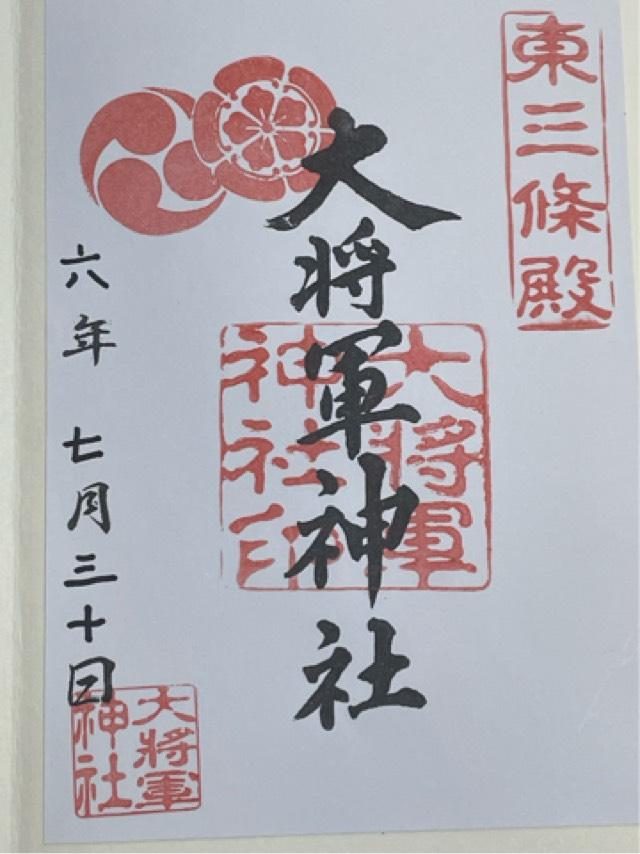 東三條殿
大将軍神社
大将軍
神社印
六年 七月三十日
大将軍
神社